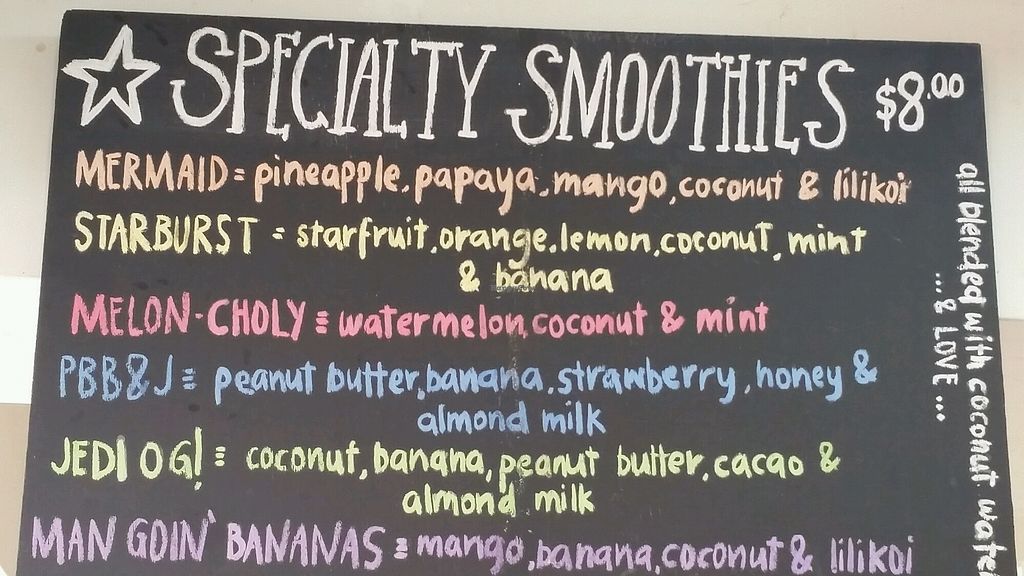 SPECIALTY SMOOTHIES $8.00
MERMAID = pineapple, papaya, mango, coconut & lilikoi
STARBURST = starfruit, orange, lemon, coconut, mint
& banana
MELON-CHOLY = watermelon, coconut & mint
PBB&J = peanut butter, banana, strawberry, honey &
almond milk
JEDI OG! = coconut, banana, peanut butter, cacao &
almond milk
MAN GOIN' BANANAS = mango, banana, coconut & lilikoi
all blended with coconut wate
... & LOVE ...